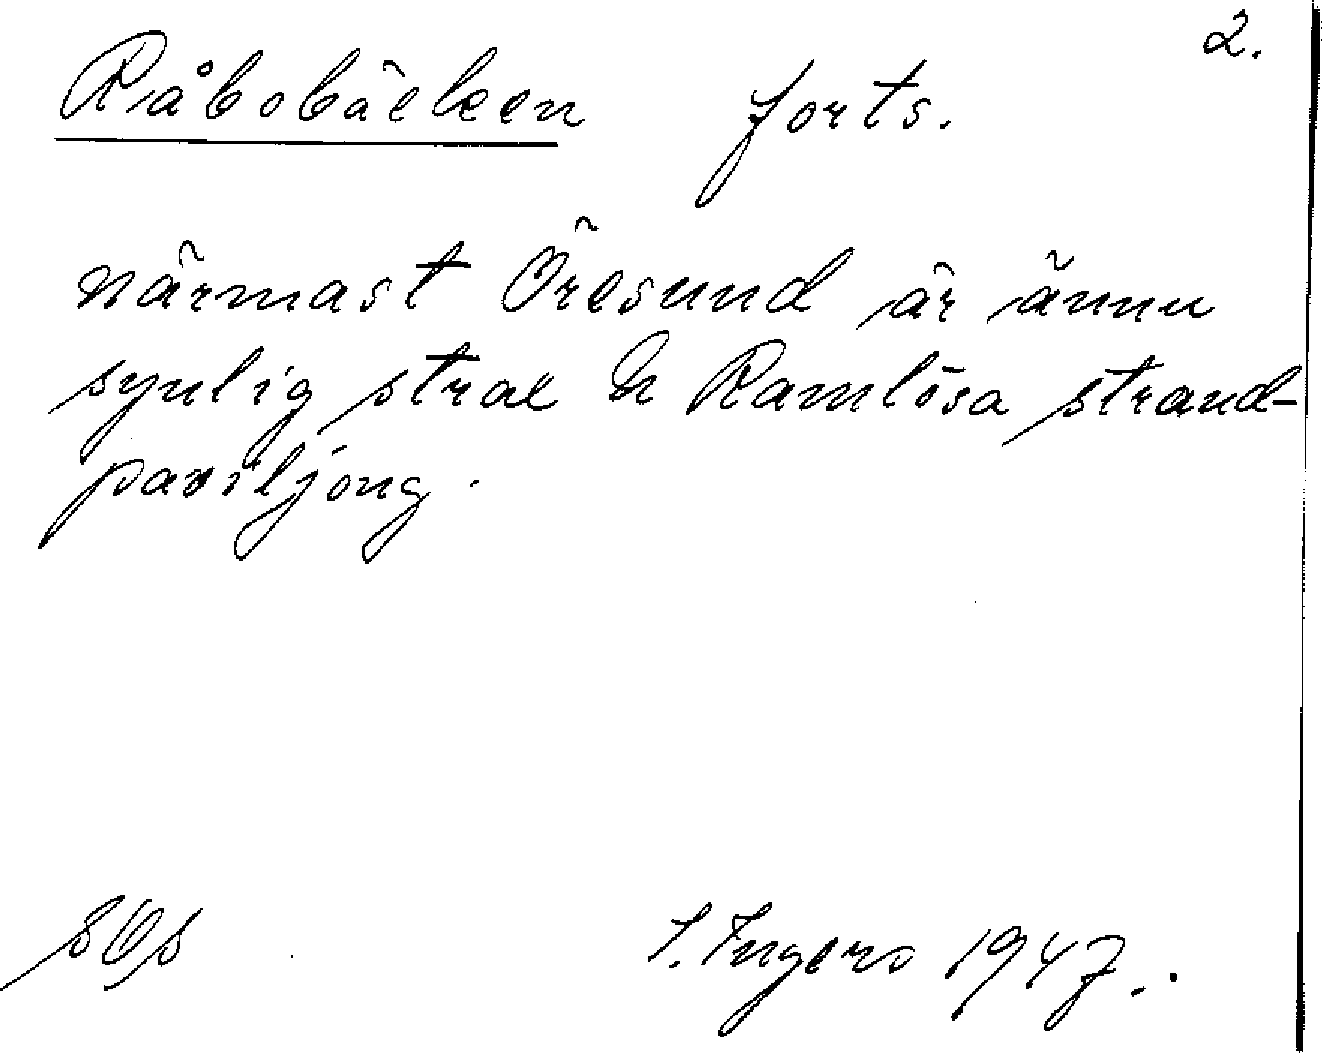 2.
Råbobäcken forts.
närmast Öresund är ännu
synlig strax N Ramlösa strand-
paviljong.
I. Ingers 1947.